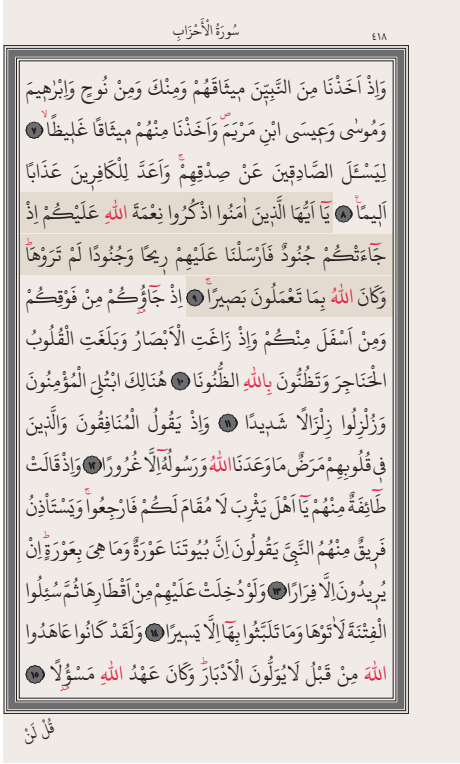 سُورَةُ الْأَحْزَابِ
٤١٨
وَاِذْ اَخَذْنَا مِنَ النَّبِيّٖنَ مٖيثَاقَهُمْ وَمِنْكَ وَمِنْ نُوحٍ وَاِبْرٰهٖيمَ
وَمُوسٰى وَعٖيسَى ابْنِ مَرْيَمَࣕ وَاَخَذْنَا مِنْهُمْ مٖيثَاقًا غَلٖيظًاۙ ٧
لِيَسْـَٔلَ الصَّادِقٖينَ عَنْ صِدْقِهِمْۚ وَاَعَدَّ لِلْكَافِرٖينَ عَذَابًا
اَلٖيمًاࣖ ٨ يَٓا اَيُّهَا الَّذٖينَ اٰمَنُوا اذْكُرُوا نِعْمَةَ اللهِ عَلَيْكُمْ اِذْ
جَٓاءَتْكُمْ جُنُودٌ فَاَرْسَلْنَا عَلَيْهِمْ رٖيحًا وَجُنُودًا لَمْ تَرَوْهَاؕ
وَكَانَ اللهُ بِمَا تَعْمَلُونَ بَصٖيرًاۚ ٩ اِذْ جَٓاؤُ۫كُمْ مِنْ فَوْقِكُمْ
وَمِنْ اَسْفَلَ مِنْكُمْ وَاِذْ زَاغَتِ الْاَبْصَارُ وَبَلَغَتِ الْقُلُوبُ
الْحَنَاجِرَ وَتَظُنُّونَ بِاللهِ الظُّنُونَا ١٠ هُنَالِكَ ابْتُلِيَ الْمُؤْمِنُونَ
وَزُلْزِلُوا زِلْزَالًا شَدٖيدًا ١١ وَاِذْ يَقُولُ الْمُنَافِقُونَ وَالَّذٖينَ
فٖي قُلُوبِهِمْ مَرَضٌ مَا وَعَدَنَا اللهُ وَرَسُولُهُٓ اِلَّا غُرُورًا ١٢ وَاِذْ قَالَتْ
طَٓائِفَةٌ مِنْهُمْ يَٓا اَهْلَ يَثْرِبَ لَا مُقَامَ لَكُمْ فَارْجِعُواۚ وَيَسْتَأْذِنُ
فَرٖيقٌ مِنْهُمُ النَّبِيَّ يَقُولُونَ اِنَّ بُيُوتَنَا عَوْرَةٌ وَمَا هِيَ بِعَوْرَةٍۚ اِنْ
يُرٖيدُونَ اِلَّا فِرَارًا ١٣ وَلَوْ دُخِلَتْ عَلَيْهِمْ مِنْ اَقْطَارِهَا ثُمَّ سُئِلُوا
الْفِتْنَةَ لَاٰتَوْهَا وَمَا تَلَبَّثُوا بِهَٓا اِلَّا يَسٖيرًا ١٤ وَلَقَدْ كَانُوا عَاهَدُوا
اللهَ مِنْ قَبْلُ لَا يُوَلُّونَ الْاَدْبَارَؕ وَكَانَ عَهْدُ اللهِ مَسْؤُ۫لًا ١٥
قُلْ لَنْ